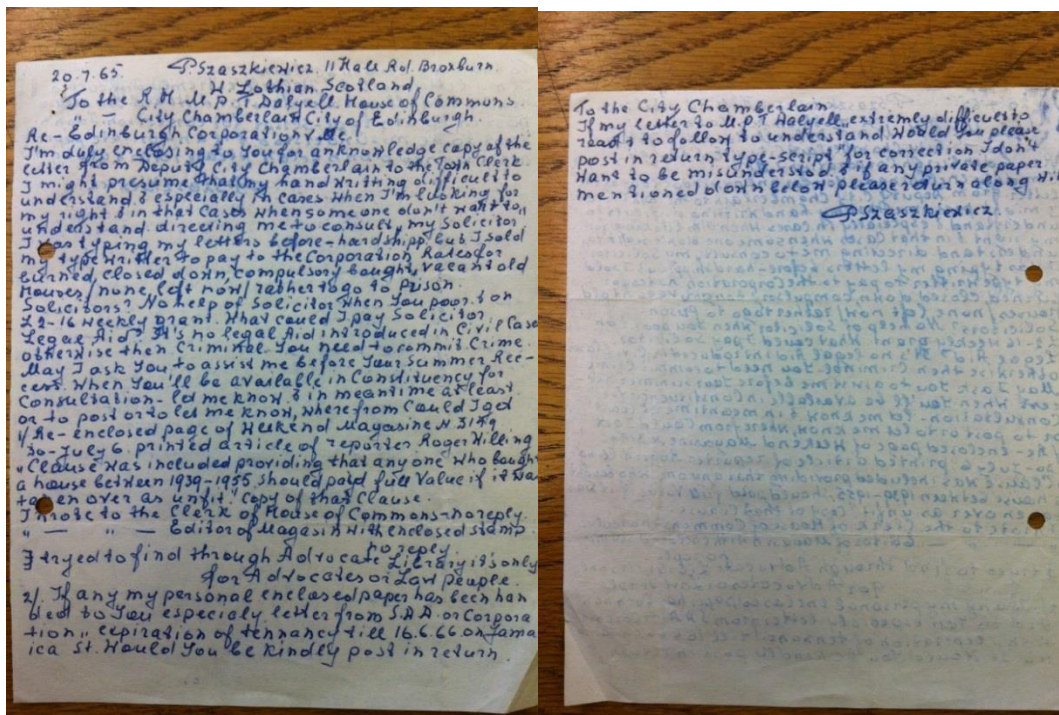 20.7.65. P. Szaszkiewicz 11 Hall Rd. Broxburn
W. Lothian Scotland
To the R.H. M.P. T Dalyell House of Commons
" — City Chamberlain City of Edinburgh.
Re-Edinburgh Corporation v. Me.
I'm duly enclosing to You for anknowledge copy of the
letter from Deputy City Chamberlain to the Town Clerk
I might presume that my handwritting difficult to
understand & especially in cases when I'm looking for
my right & in that cases when someone don't want to "
understand directing me to consult my Solicitor
I was typing my letters before-hardshipp but I sold
my typewritter to pay to the Corporation Rates for
burned, closed down, compulsory bought, vacant old
Houses/none left now/rather to go to prison.
Solicitors? No help of Solicitor when You poor & on
£2-16 weekly grant. What could I pay Solicitor
Legal Aid? It's no legal Aid introduced in Civil Case
otherwise then Criminal. You need to commit Crime.
May I ask You to assist me before Your Summer Re-
cess. When You'll be available in Constituency for
Consultation- let me know & in meantime at least
or to post or to let me know, where from Could I get
1/ Re-enclosed page of Weekend Magasine N 3149
30-July 6. printed article of reporter Roger Willing
"Clause was included providing that any one who bough
a house between 1939-1955 should paid full Value if it wa
taken over as unfit" copy of that Clause.
I wrote to the Clerk of House of Commons-no reply.
" — " — Editor of Magasin with enclosed stamp
no reply.
I tryed to find through Advocate Library it's only
for Advocates or Law people.
2/. If any my personal enclosed paper has been han
ded to You especialy letter from S.A.D. or Corpora
tion " expiration of tennancy till 16.6.66 on Jama
ica St. Would You be kindly post in return.
To the City Chamberlain
If my letter to M.P. T Dalyell "extremely difficult to
read & to follow to understand Would You please
post in return type-script "for correction I don't
want to be misunderstood & if any private paper
mentioned down below please return along with
P. Szaszkiewicz